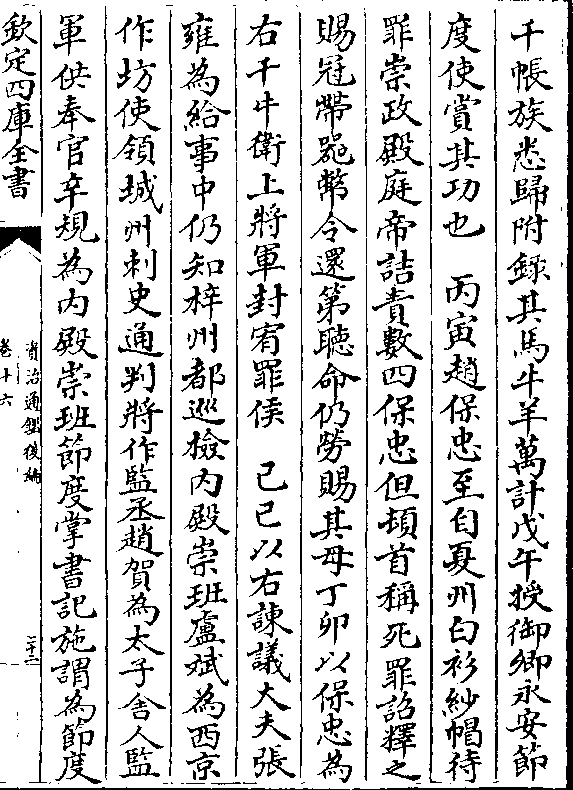 千帳族悉歸附録其馬牛羊萬計戊午授御卿永安節
度使賞其功也　丙寅趙保忠至自夏州白衫紗帽待
罪崇政殿庭帝詰責數四保忠但頓首稱死罪詔釋之
賜冠帶器幣令還第聽命仍勞賜其母丁卯以保忠為
右千牛衛上將軍封宥罪侯　己巳以右諫議大夫張
雍為給事中仍知梓州都巡檢内殿崇班盧斌為西京
作坊使領城州刺史通判將作監丞趙賀為太子舍人監
軍供奉官辛規為内殿崇班節度掌書記施謂為節度
欽定四庫全書
資治通鑑後編
卷十六
二十二